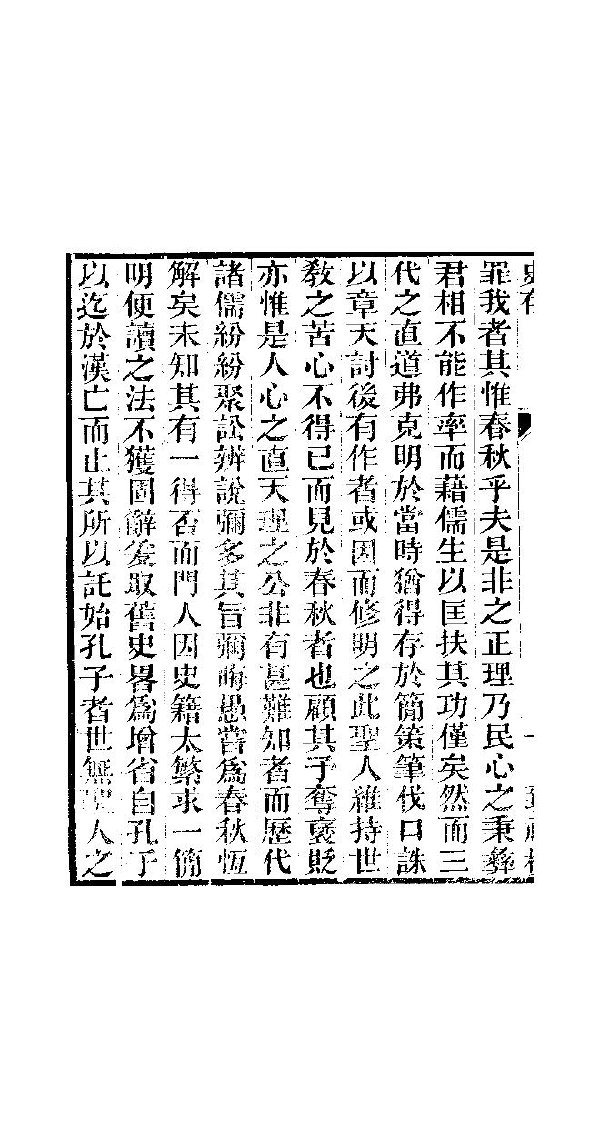 罪我者其惟春秋乎夫是非之正理乃民心之秉彝
君相不能作率而藉儒生以匡扶其功僅矣然而三
代之直道弗克明於當時猶得存於簡策筆伐口誅
以章天討後有作者或因而修明之此聖人維持世
敎之苦心不得已而見於春秋者也顧其予奪褒貶
亦惟是人心之直天理之公非有甚難知者而歷代
諸儒紛紛聚訟辨說彌多其旨彌晦愚嘗爲春秋恆
解矣未知其有一得否而門人因史籍太繁求一簡
明便讀之法不獲固辭爰取舊史畧爲增省自孔子
以迄於漢亡而止其所以託始孔子者世無聖人之